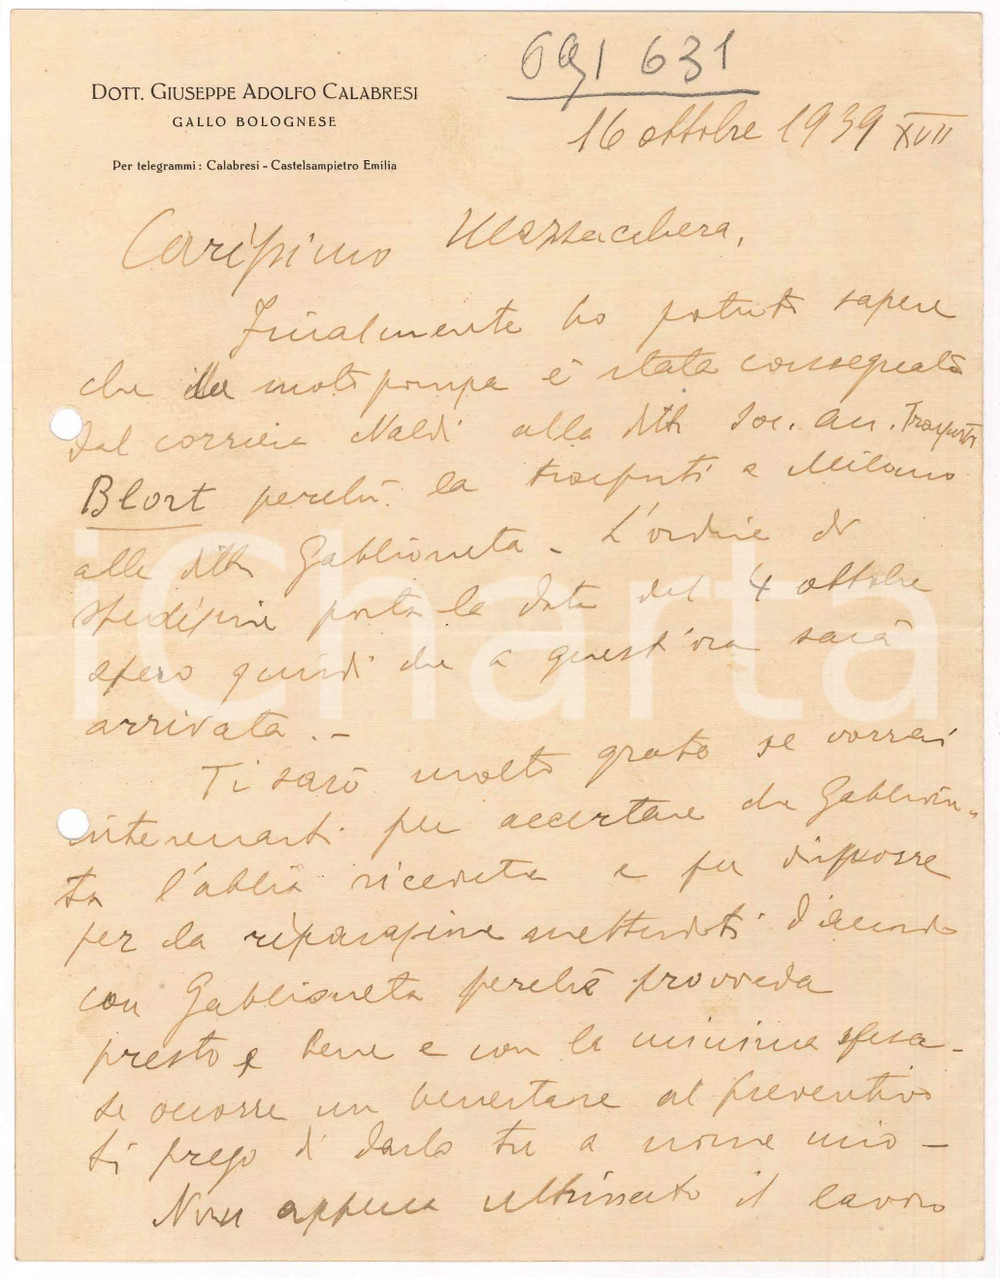 691 631
DOTT. GIUSEPPE ADOLFO CALABRESI
GALLO BOLOGNESE
Per telegrammi: Calabresi - Castelsampietro Emilia
16 ottobre 1939 XVII
Carissimo Mezzacchera,
Finalmente ho potuto sapere
che la motopompa è stata consegnata
dal corriera Naldi alla ditta Soc. An. Trasporti
Blort perchè la trasporti a Milano
alla ditta Gabbioneta - L'ordine di
spedizione porta la data del 4 ottobre
spero quindi che a quest'ora sarà
arrivata. -
Ti sarò molto grato se vorrai
interessarti per accertare che Gabbione-
ta l'abbia ricevuta e per disporre
per la riparazione mettendoti d'accordo
con Gabbioneta perchè provveda
presto e bene e con la minima spesa -
Se occorre un benestare al preventivo
ti prego di darlo tu a nome mio -
Non appena ultimato il lavoro
iCharta